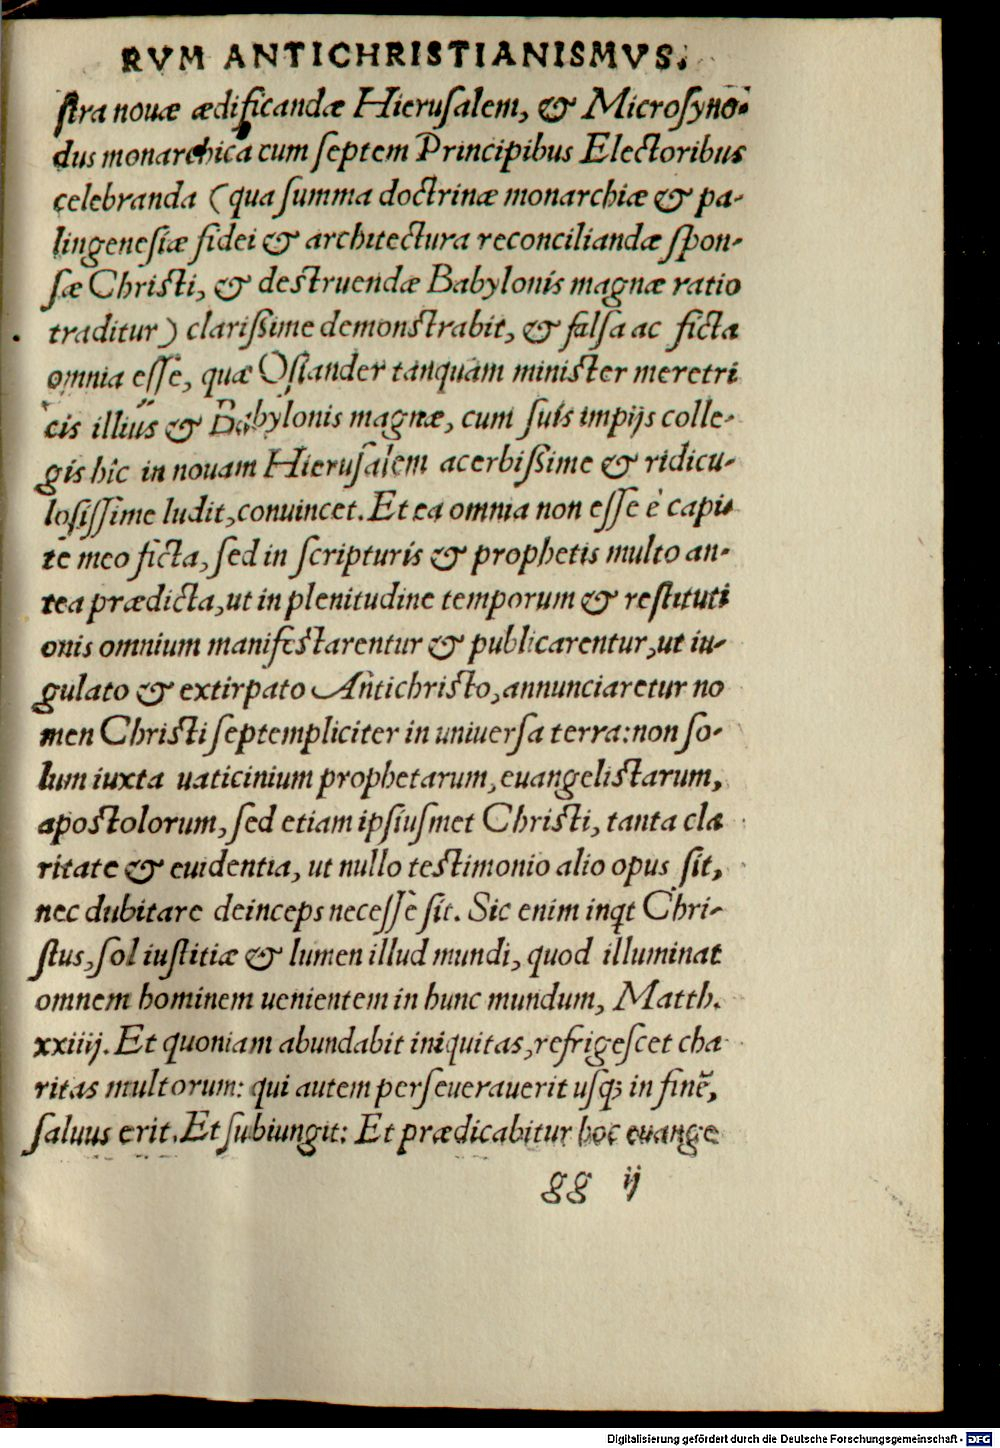 RVM ANTICHRISTIANISMVS.
ſtra nouæ ædificandæ Hieruſalem, & Microſyno-
dus monarchica cum ſeptem Principibus Electoribus
celebranda (qua ſumma doctrinæ monarchiæ & pa-
lingeneſiæ fidei & architectura reconciliandæ ſpon-
ſæ Chriſti, & deſtruendæ Babylonis magnæ ratio
traditur) clariſſime demonſtrabit, & falſa ac ficta
omnia eſſe, quæ Oſiander tanquam miniſter meretri
cis illius & Babylonis magnæ, cum ſuis impijs colle-
gis hic in nouam Hieruſalem acerbiſſime & ridicu-
loſiſſime ludit, conuincet. Et ea omnia non eſſe è capi-
te meo ficta, ſed in ſcripturis & prophetis multo an-
tea prædicta, ut in plenitudine temporum & reſtituti
onis omnium manifeſtarentur & publicarentur, ut iu-
gulato & extirpato Antichriſto, annunciaretur no
men Chriſti ſeptempliciter in uniuerſa terra: non ſo-
lum iuxta uaticinium prophetarum, euangeliſtarum,
apoſtolorum, ſed etiam ipſiuſmet Chriſti, tanta cla
ritate & euidentia, ut nullo teſtimonio alio opus ſit,
nec dubitare deinceps neceſſe ſit. Sic enim inqt Chri-
ſtus, ſol iuſtitiæ & lumen illud mundi, quod illuminat
omnem hominem uenientem in hunc mundum, Matth.
xxiiij. Et quoniam abundabit iniquitas, refrigeſcet cha
ritas multorum: qui autem perſeuerauerit uſq; in finẽ,
ſaluus erit. Et ſubiungit: Et prædicabitur hoc euange
gg ij
Digitalisierung gefördert durch die Deutsche Forschungsgemeinschaft - DFG